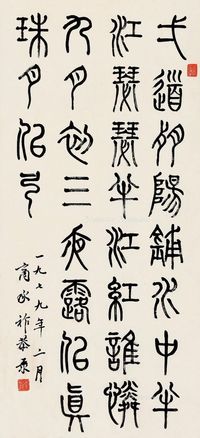 弌道殘陽鋪水中半
江瑟瑟半江紅誰憐
九月初三夜露佀眞
珠月佀弓
一九七九年二月
商承祚